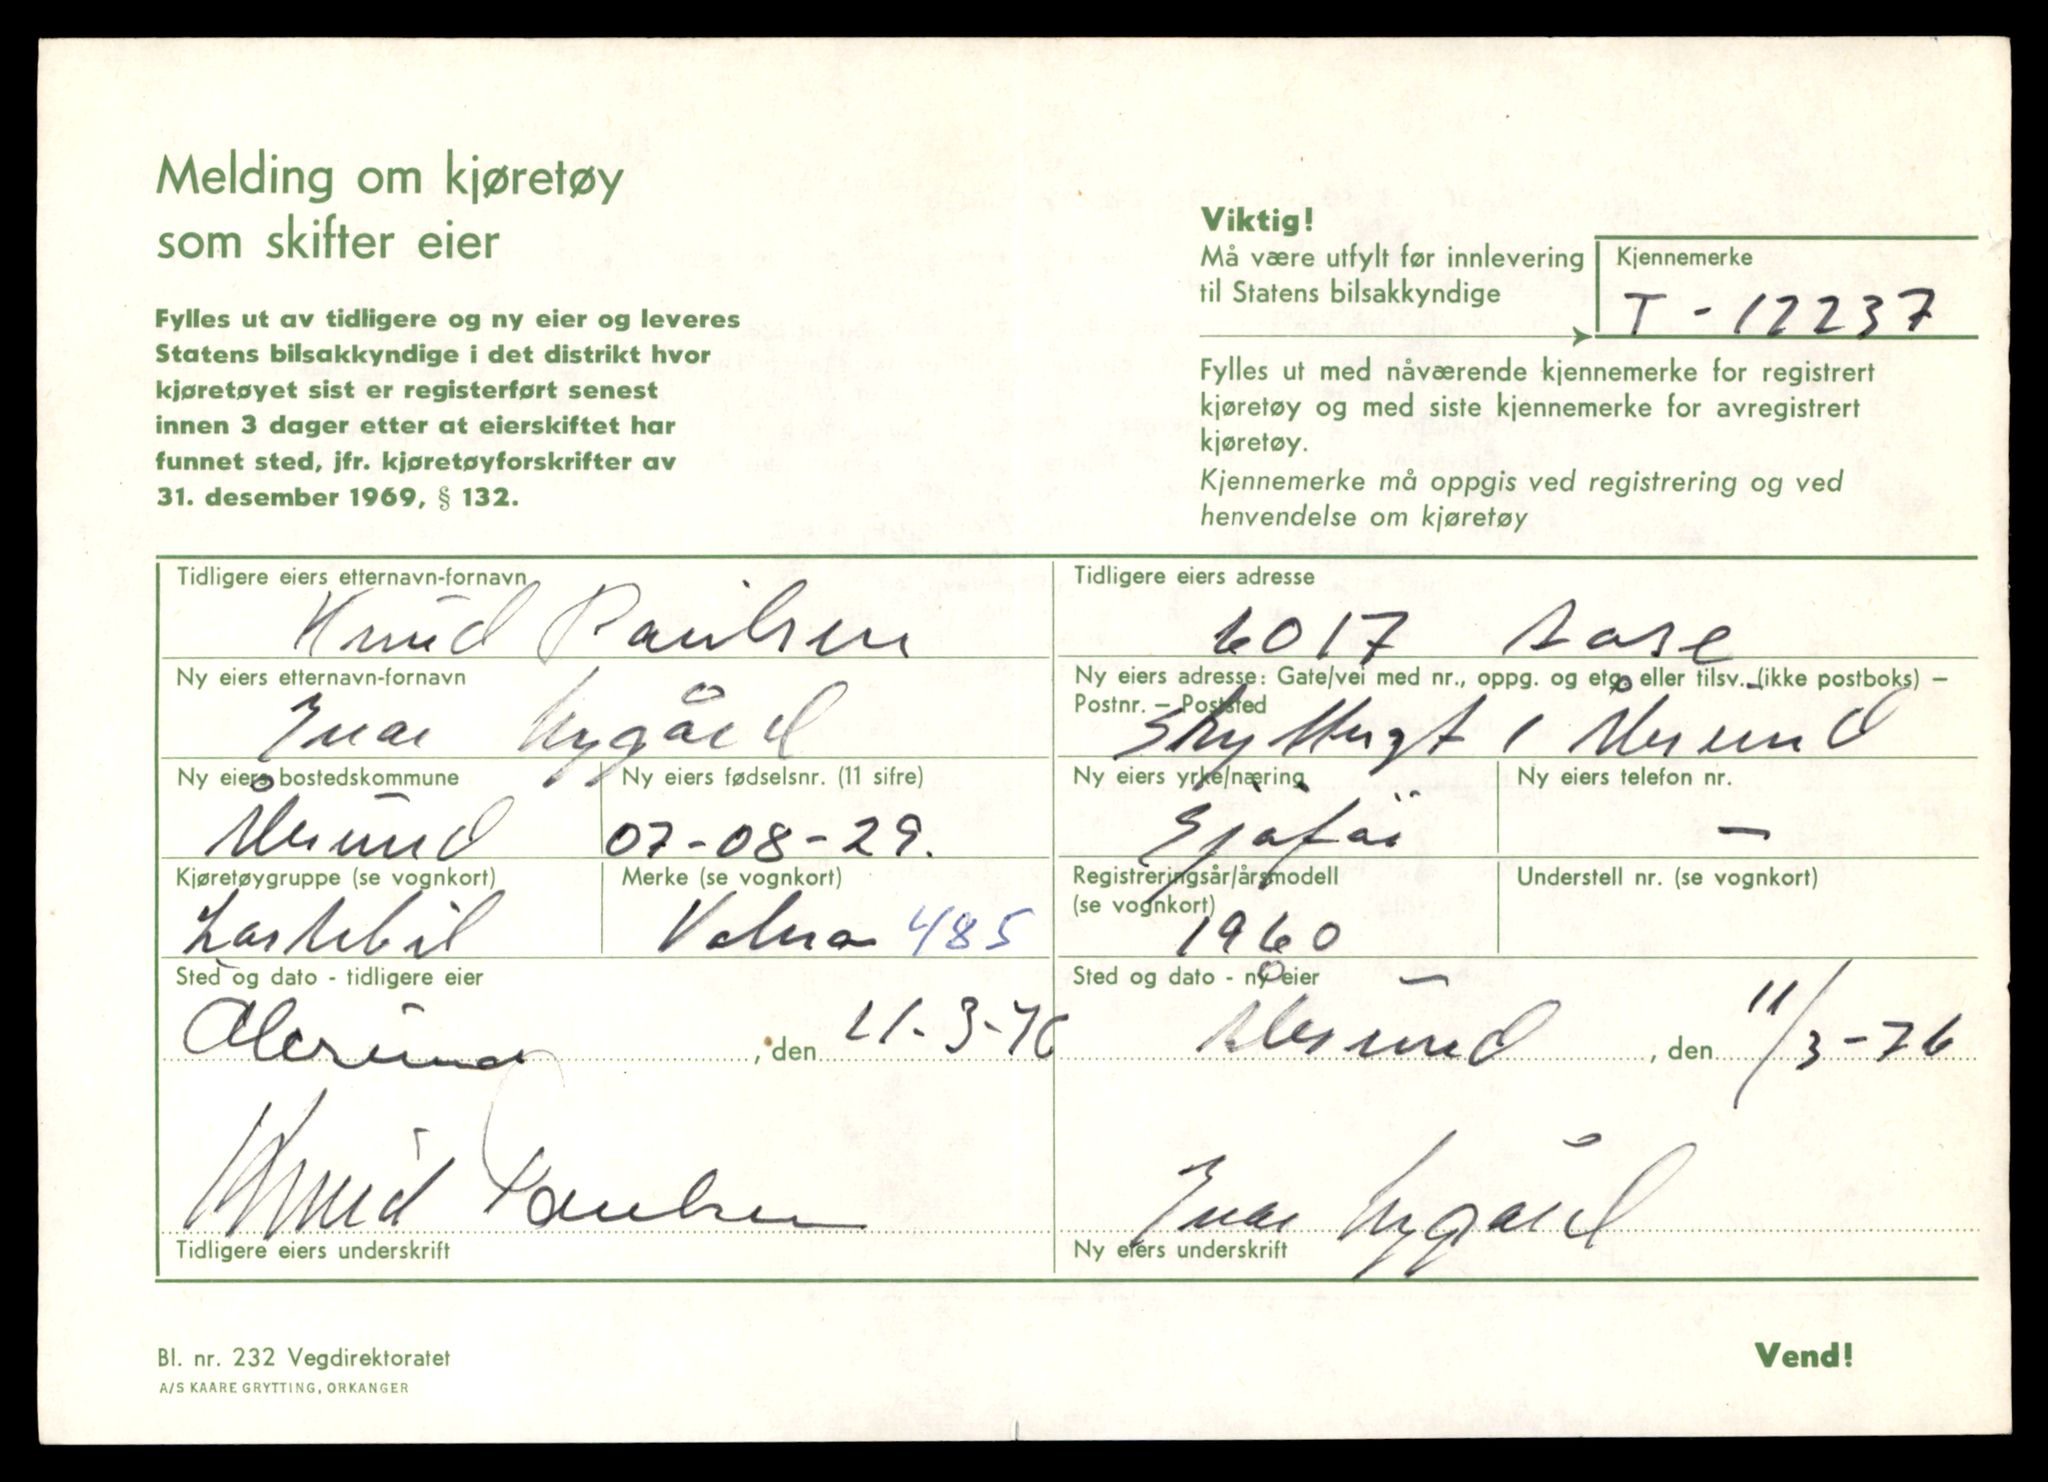 Melding om kjøretøy
som skifter eier
Fylles ut av tidligere og ny eier og leveres
Statens bilsakkyndige i det distrikt hvor
kjøretøyet sist er registerført senest
innen 3 dager etter at eierskiftet har
funnet sted, jfr. kjøretøyforskrifter av
31. desember 1969, § 132.
Viktig!
Må være utfylt før innlevering
til Statens bilsakkyndige
Kjennemerke
T - 12237
Fylles ut med nåværende kjennemerke for registrert
kjøretøy og med siste kjennemerke for avregistrert
kjøretøy.
Kjennemerke må oppgis ved registrering og ved
henvendelse om kjøretøy
Tidligere eiers etternavn-fornavn
Knud Paulsen
Tidligere eiers adresse
6017 Aase
Ny eiers etternavn-fornavn
Ivar Nygård
Ny eiers adresse: Gate/vei med nr., oppg. og etg. eller tilsv. (ikke postboks) –
Postnr. – Poststed
1 Ålesund
Ny eiers bostedskommune
Ålesund
Ny eiers fødselsnr. (11 sifre)
07-08-29.
Ny eiers yrke/næring
Sjåfør
Ny eiers telefon nr.
–
Kjøretøygruppe (se vognkort)
Lastebil
Merke (se vognkort)
Volvo 485
Registreringsår/årsmodell
(se vognkort)
1960
Understell nr. (se vognkort)
Sted og dato - tidligere eier
Ålesund, den 11-3-76
Sted og dato - ny eier
Ålesund, den 11/3-76
Knud Paulsen
Tidligere eiers underskrift
Ivar Nygård
Ny eiers underskrift
Bl. nr. 232 Vegdirektoratet
A/S KAARE GRYTTING, ORKANGER
Vend!